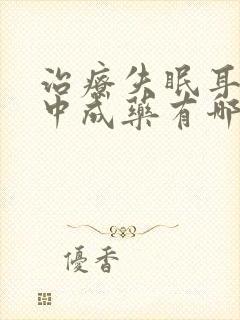 治療失眠耳
中成藥有哪
優香